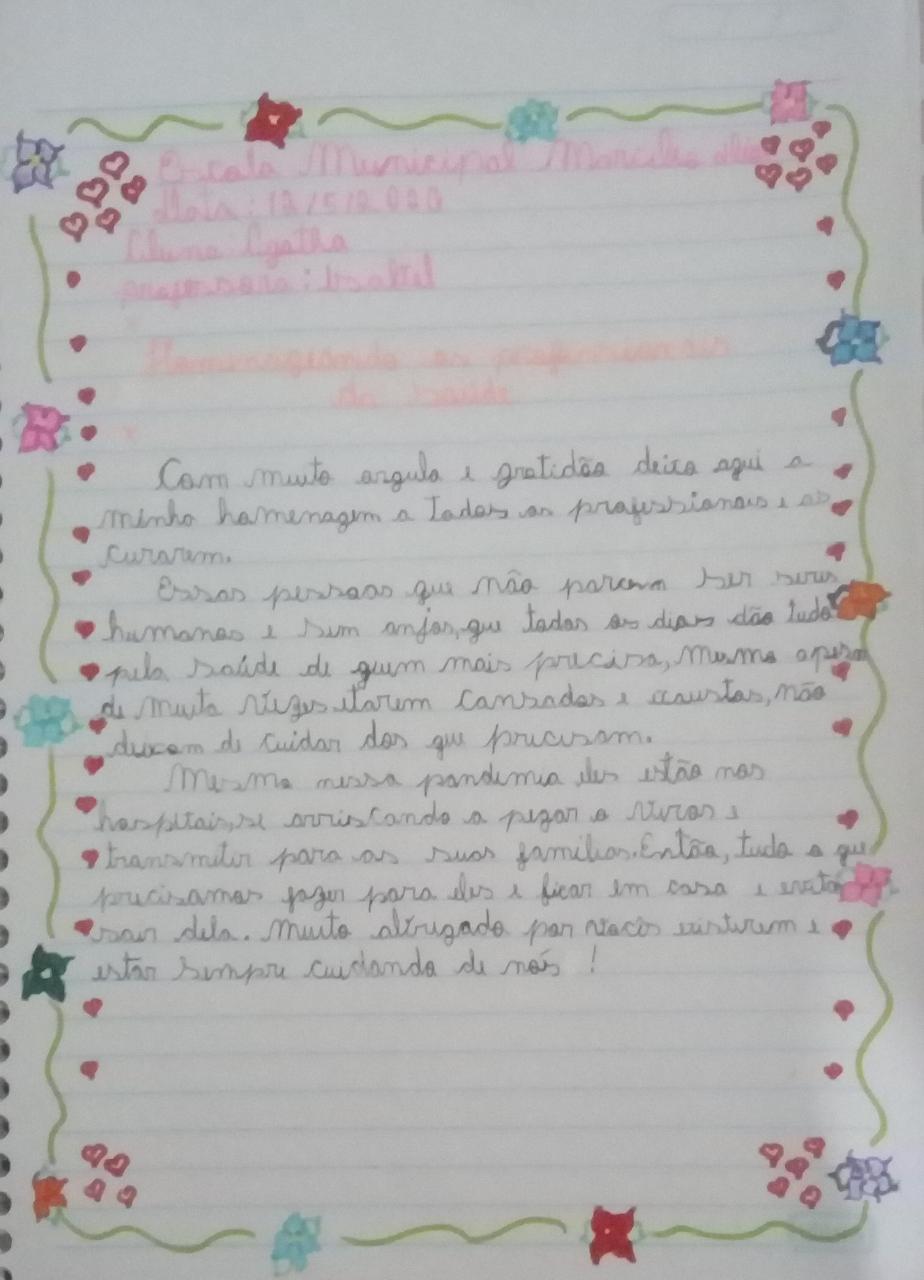 Escola Municipal Marcilio
Data: 12/5/2020
Aluna: Agatha
professora: Isabel
Homenageando os profissionais
da saúde
Com muito orgulo e gratidão deixo aqui a
minha homenagem a todos os profissionais e os
curarem.
Essas pessoas que não parcem ser seres
humanos e sim anjos, que todos os dias dão tudo
pela saúde de quem mais precisa, mesmo apesar
de muita vezes etarem cansados e ecaustas, não
deixam de cuidar dos que precisam.
Mesmo nessa pandemia eles estão nos
hospitais, se arriscando a pegar o virus e
transmitir para as suas famílias. Então, tudo o que
precisamos fazer para eles e ficar em casa e evitar
sair dela. Muito obrigado por vocês existirem e
estár sempre cuidando de nós!